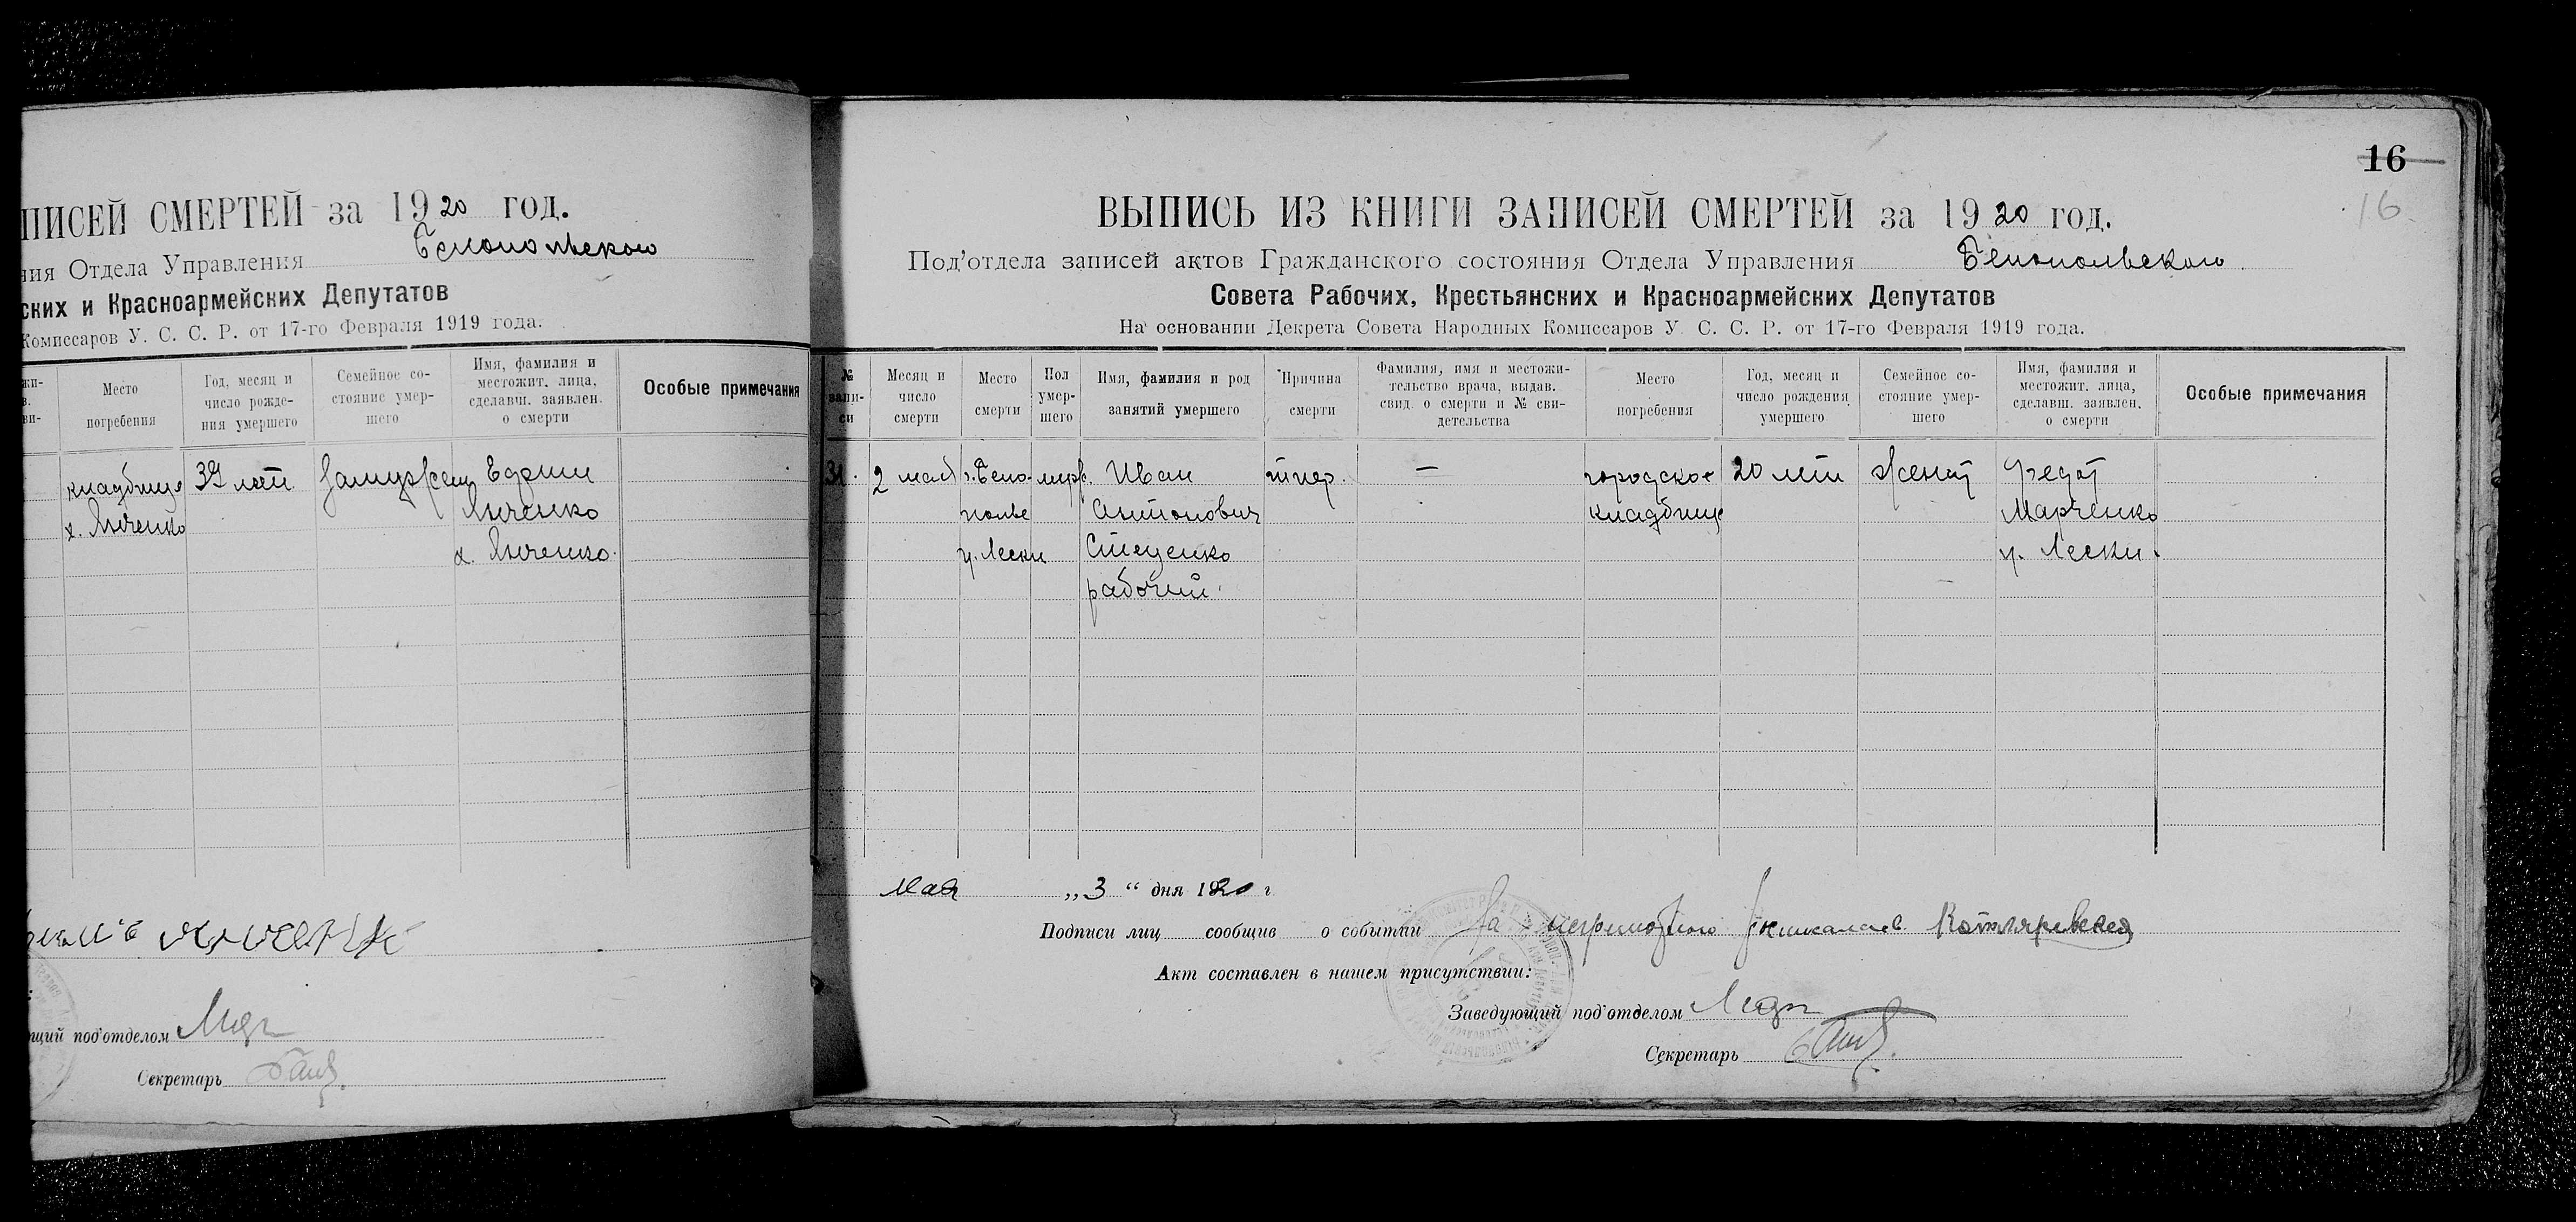 ПИСЕЙ СМЕРТЕЙ за 1920 год.
ния Отдела Управления Белопольского
ских и Красноармейских Депутатов
Комиссаров У. С. С. Р. от 17-го Февраля 1919 года.
жи-
в.
ви-
Место
погребения
Год, месяц и
число рожде-
ния умершего
Семейное со-
стояние умер-
шего
Имя, фамилия и
местожит. лица,
сделавш. заявлен.
о смерти
Особые примечания
кладбище
х. Янченко
39 лет
замужем
Ефрим
Янченко
х. Янченко.
ющий под'отделом
Секретарь
16
16.
ВЫПИСЬ ИЗ КНИГИ ЗАПИСЕЙ СМЕРТЕЙ за 1920 год.
Под'отдела записей актов Гражданского состояния Отдела Управления Белопольского
Совета Рабочих, Крестьянских и Красноармейских Депутатов
На основании Декрета Совета Народных Комиссаров У. С. С. Р. от 17-го Февраля 1919 года.
№
запи-
си
Месяц и
число
смерти
Место
смерти
Пол
умер-
шего
Имя, фамилия и род
занятий умершего
Причина
смерти
Фамилия, имя и местожи-
тельство врача, выдав.
свид. о смерти и № сви-
детельства
Место
погребения
Год, месяц и
число рождения
умершего
Семейное со-
стояние умер-
шего
Имя, фамилия и
местожит. лица,
сделавш. заявлен.
о смерти
Особые примечания
31.
2 мая
г. Бело-
полье
ц. Лески
муж.
Иван
Антонович
Стеценко
рабочий.
—
городское
кладбище
20 лет
женат
Федот
Марченко
ц. Лески.
Мая „3“ дня 1920 г
Подписи лиц сообщив о событии За неграмотного Котляревская
Акт составлен в нашем присутствии:
Заведующий под'отделом
Секретарь